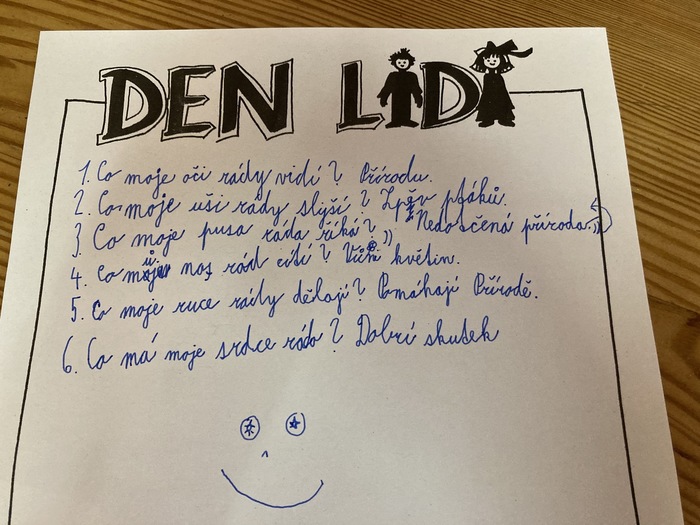 DEN LIDÍ
1. Co moje oči rády vidí? Přírodu.
2. Co moje uši rády slyší? Zpěv ptáků.
3 Co moje pusa ráda říká? "Nedotčená příroda."
4. Co můj nos rád cítí? Vůni květin.
5. Co moje ruce rády dělají? Pomáhají Přírodě.
6. Co má moje srdce rádo? Dobrí skutek